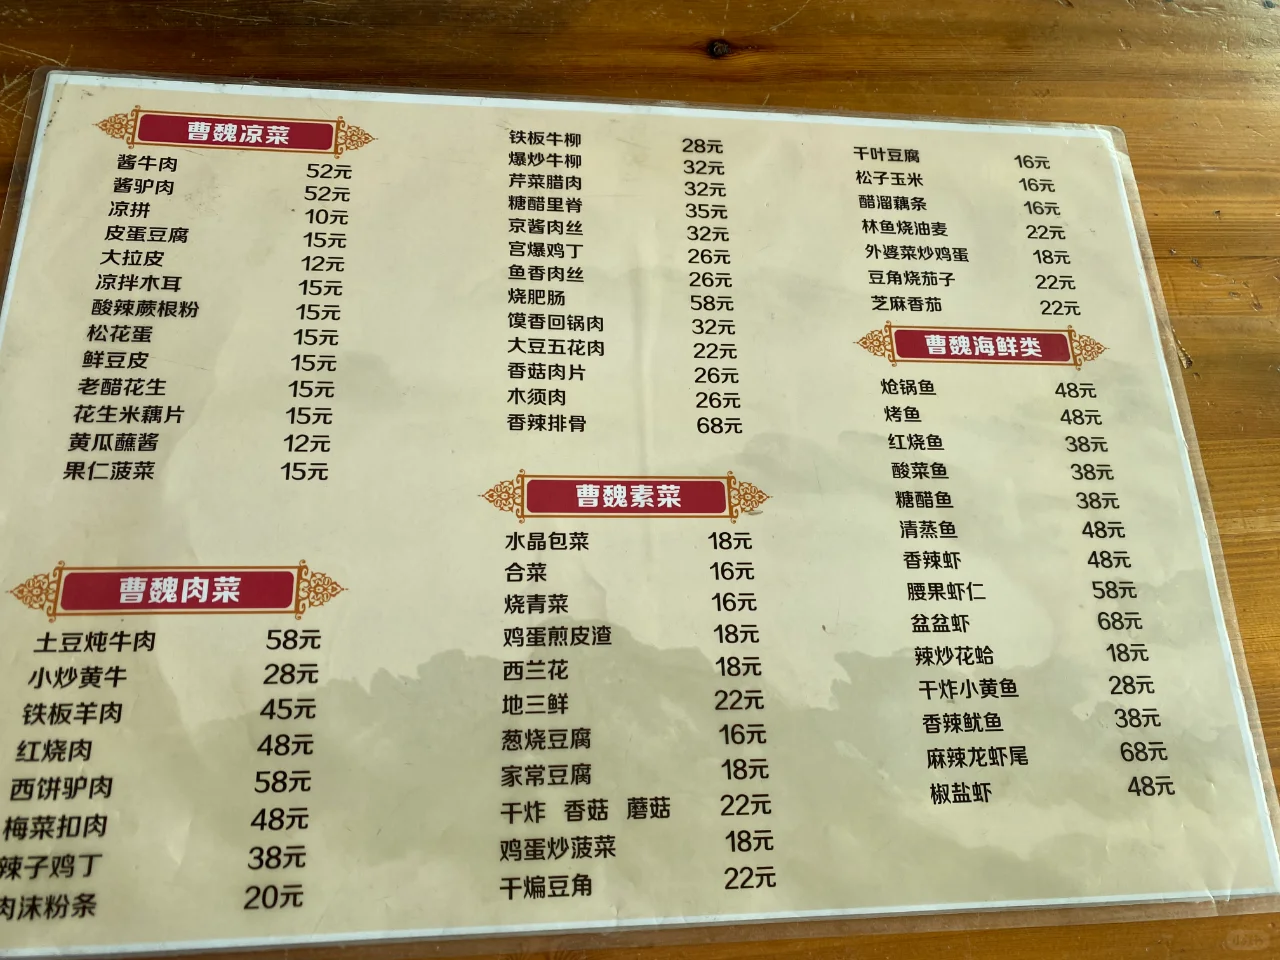 曹魏凉菜
酱牛肉 52元
酱驴肉 52元
凉拼 10元
皮蛋豆腐 15元
大拉皮 12元
凉拌木耳 15元
酸辣蕨根粉 15元
松花蛋 15元
鲜豆皮 15元
老醋花生 15元
花生米藕片 15元
黄瓜蘸酱 12元
果仁菠菜 15元
曹魏肉菜
土豆炖牛肉 58元
小炒黄牛 28元
铁板羊肉 45元
红烧肉 48元
西饼驴肉 58元
梅菜扣肉 48元
辣子鸡丁 38元
肉沫粉条 20元
铁板牛柳 28元
爆炒牛柳 32元
芹菜腊肉 32元
糖醋里脊 35元
京酱肉丝 32元
宫爆鸡丁 26元
鱼香肉丝 26元
烧肥肠 58元
馍香回锅肉 32元
大豆五花肉 22元
香菇肉片 26元
木须肉 26元
香辣排骨 68元
曹魏素菜
水晶包菜 18元
合菜 16元
烧青菜 16元
鸡蛋煎皮渣 18元
西兰花 18元
地三鲜 22元
葱烧豆腐 16元
家常豆腐 18元
干炸 香菇 蘑菇 22元
鸡蛋炒菠菜 18元
干煸豆角 22元
千叶豆腐 16元
松子玉米 16元
醋溜藕条 16元
林鱼烧油麦 22元
外婆菜炒鸡蛋 18元
豆角烧茄子 22元
芝麻香茄 22元
曹魏海鲜类
炝锅鱼 48元
烤鱼 48元
红烧鱼 38元
酸菜鱼 38元
糖醋鱼 38元
清蒸鱼 48元
香辣虾 48元
腰果虾仁 58元
盆盆虾 68元
辣炒花蛤 18元
干炸小黄鱼 28元
香辣鱿鱼 38元
麻辣龙虾尾 68元
椒盐虾 48元